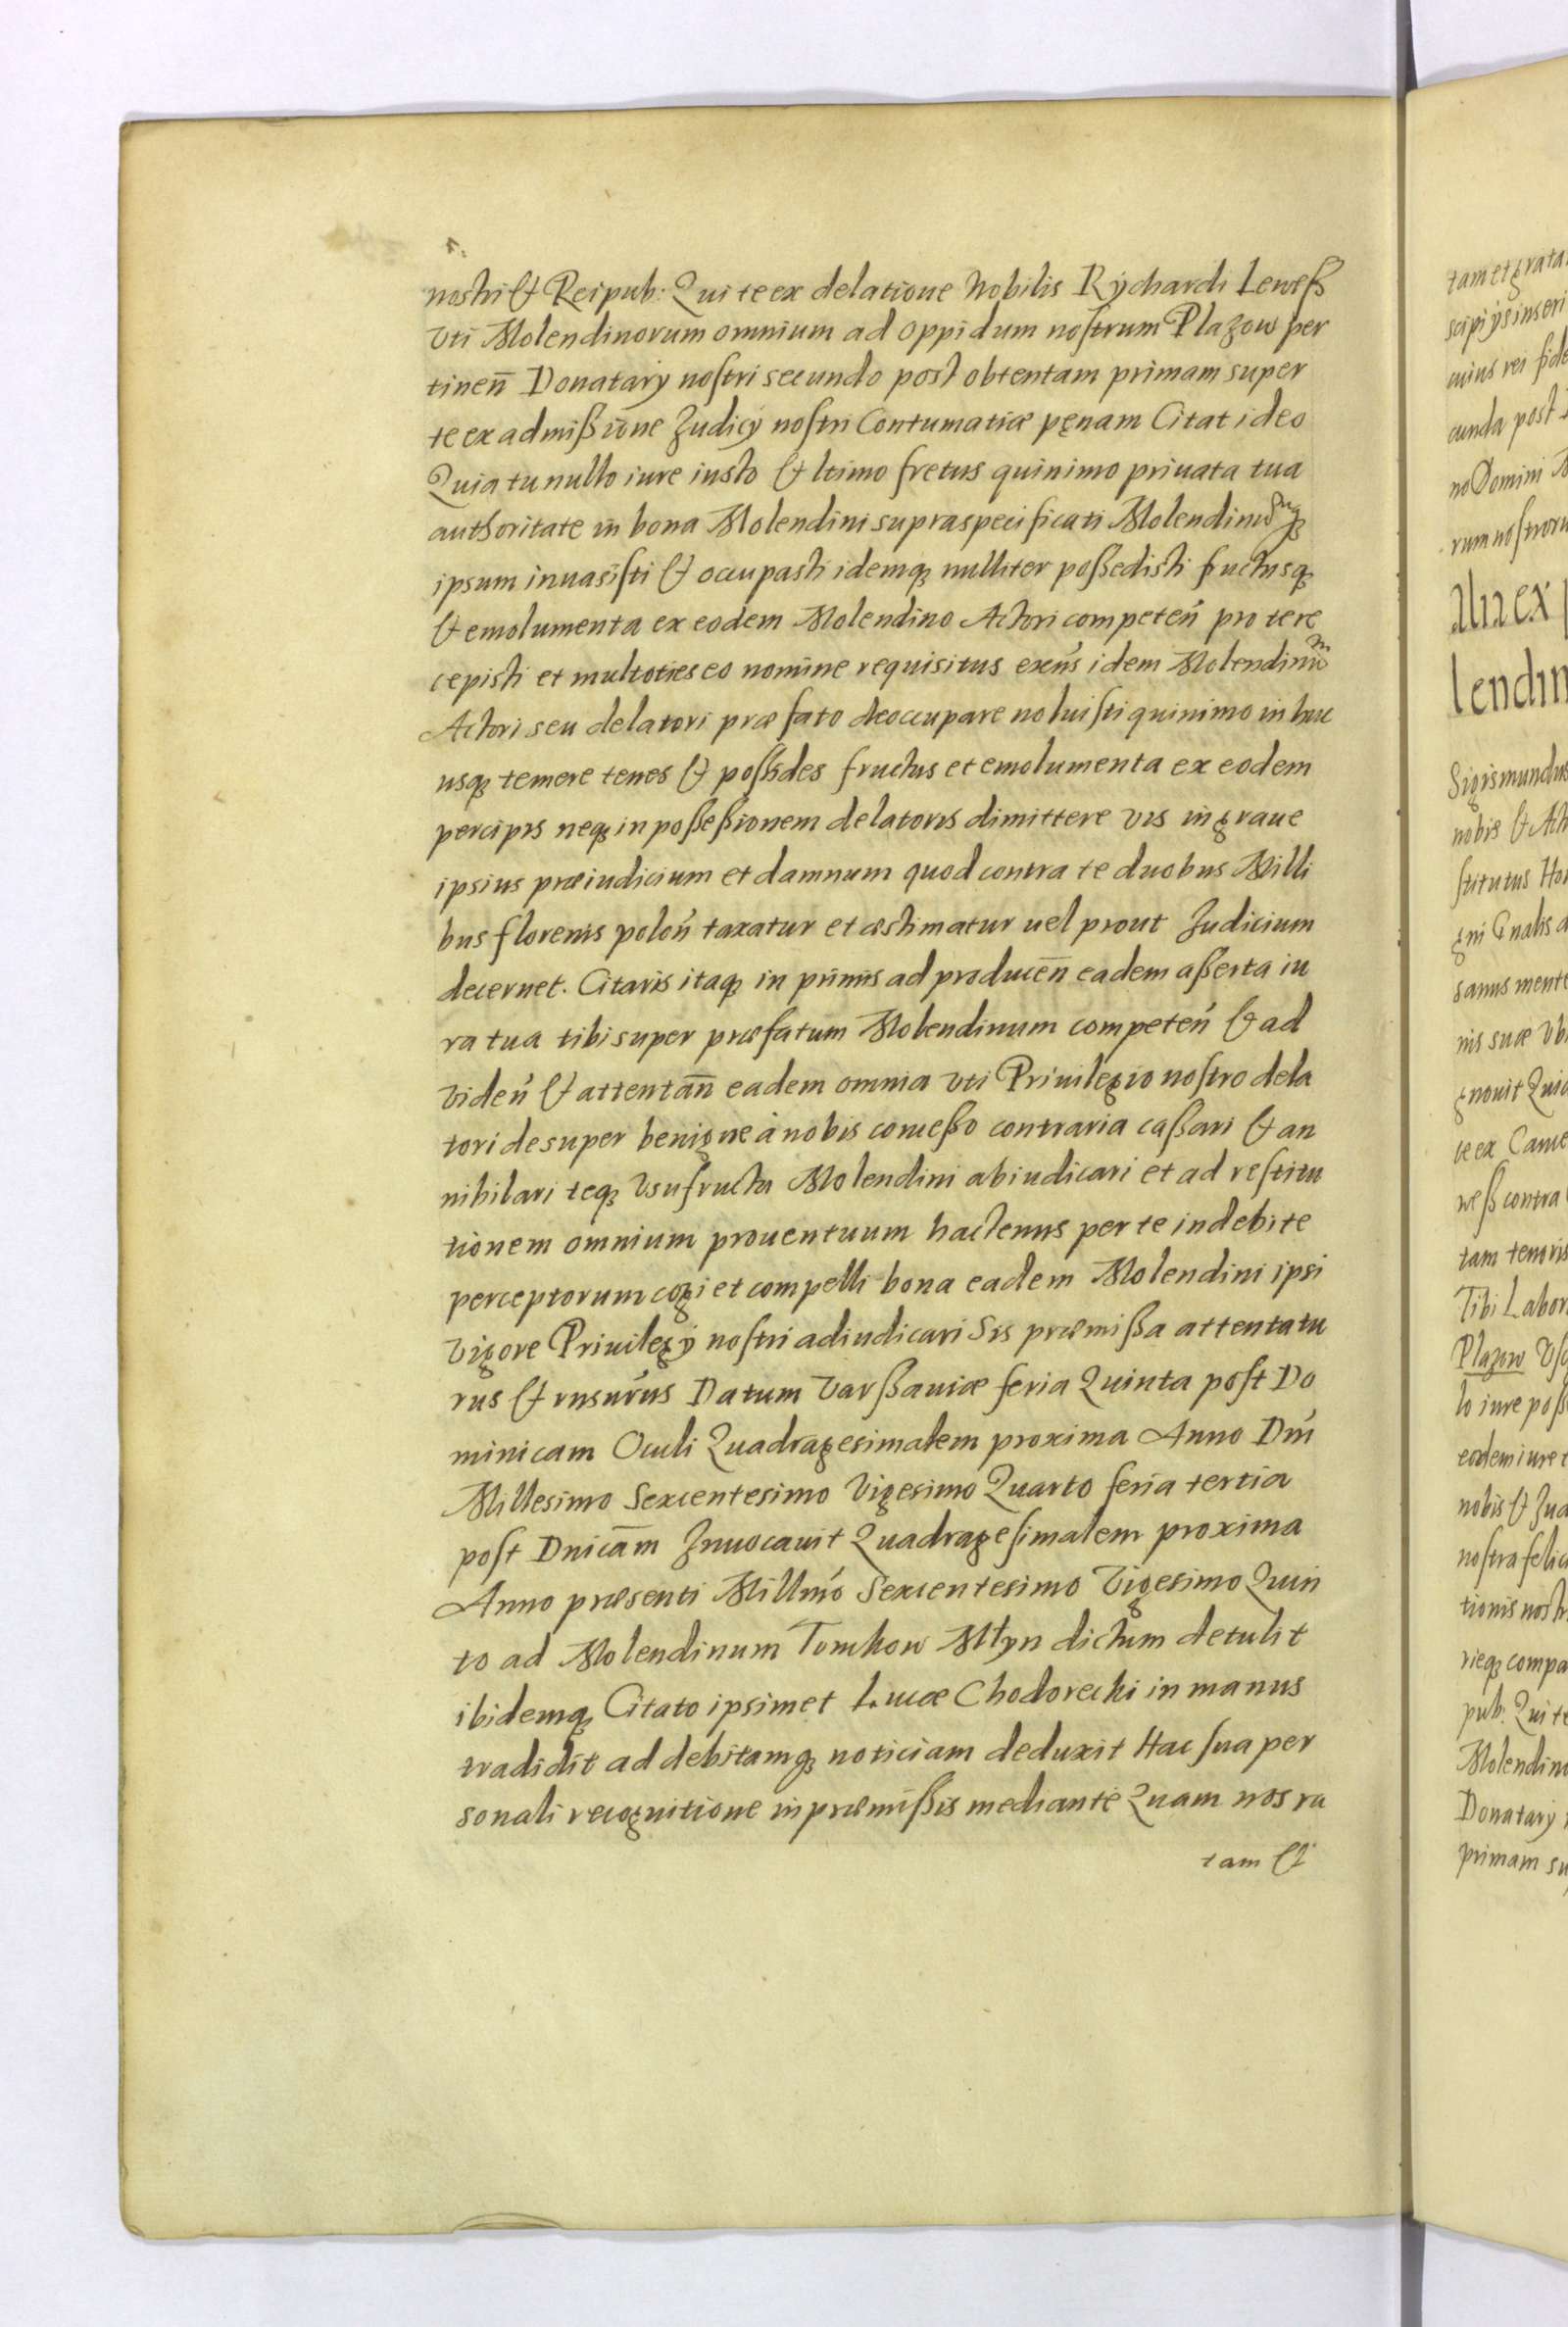 nostri & Reipub: Qui te ex delatione Nobilis Rychardi Leweß
Vti Molendinorum omnium ad oppidum nostrum Plazow per
tinen̄ Donatarÿ nostri secundo post obtentam primam super
te ex admißione Judicÿ nostri Contumatiæ pęnam Citat ideo
Quia tu nullo iure iusto & ltimo fretus quinimo priuata tua
authoritate in bona Molendini supraspecificati Molendinumq
ipsum inuasisti & occupasti idemq nulliter poßedisti fructusq
& emolumenta ex eodem Molendino Actori competen̄ pro te re
cepisti et multoties eo nomine requisitus exn̄s idem Molendinum
Actori seu delatori præfato deoccupare noluisti quinimo in huc
usq temere tenes & poßides fructus et emolumenta ex eodem
percipis neq in poßeßionem delatoris dimittere vis in graue
ipsius præiudicium et damnum quod contra te duobus Milli
bus florenis polon̄ taxatur et æstimatur uel prout Judicium
decernet. Citaris itaq in primis ad producen̄ eadem aßerta iu
ra tua tibi super præfatum Molendinum competen̄ & ad
viden̄ & attentan̄ eadem omnia vti Priuilegio nostro dela
tori desuper benigne à nobis conceßo contraria caßari & an
nihilari teq Vsufructu Molendini abiudicari et ad restitu
tionem omnium prouentuum hactenus per te indebite
perceptorum cogi et compelli bona eadem Molendini ipsi
vigore Priuilegÿ nostri adiudicari Sis præmißa attentatu
rus & rnsurus Datum Varßauiæ feria Quinta post Do
minicam Oculi Quadragesimalem proxima Anno Dnī
Millesimo Sexcentesimo Vigesimo Quarto feria tertia
post Dnicām Jnuocauit Quadragesimalem proxima
Anno præsenti Millmō Sexcentesimo Vigesimo Quin
to ad Molendinum Tomkow Młyn dictum detulit
ibidemq Citato ipsimet Lucæ Chodorecki in manus
tradidit ad debitamq noticiam deduxit Hac sua per
sonali recognitione in præmißis mediante Quam nos ra
tam &
tam et grata
scipiÿs inseri
cuius rei fide
cunda post
no Domini
rum nostroru
Alia ex
lendin
Sigismundus
nobis & Act
stitutus Ho
gni Gnalis a
sanus mente
nis suæ Vb
gnouit Quia
ce ex Cance
weß contra
tam tenoris
Tibi Labor
Plazow Vs
lo iure poß
eodem iure
nobis & Jud
nostra felic
tionis nostr
rieq compa
pub: Qui te
Molendino
Donatarÿ
primam su